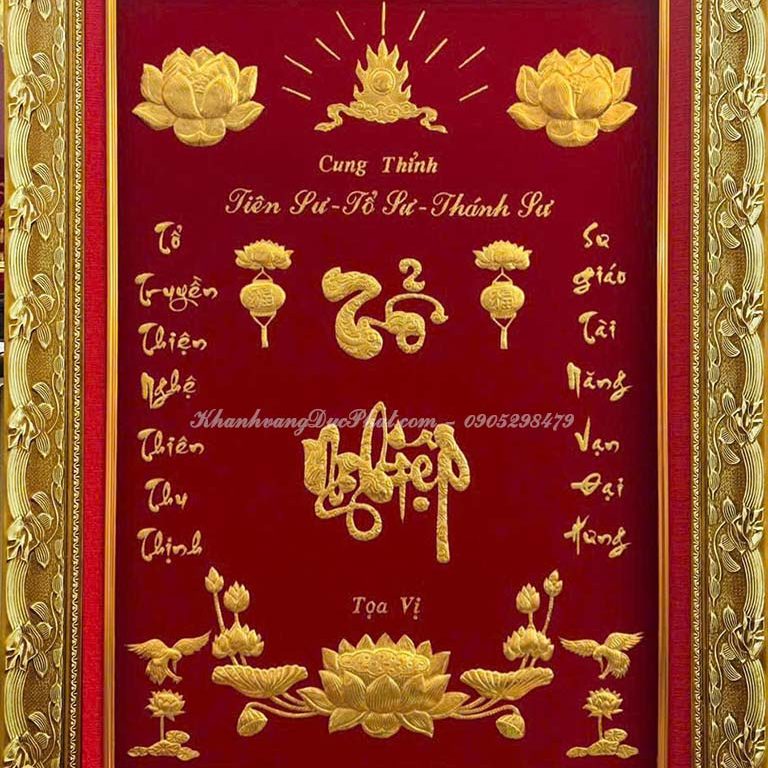 Cung Thỉnh
Tiên Sư - Tổ Sư - Thánh Sư
Tổ
Truyền
Thiện
Nghệ
Thiên
Thu
Thịnh
Tổ
Nghiệp
Sư
Giáo
Tài
Năng
Vạn
Đại
Hưng
福
福
KhanhvangDucPhat.com - 0905298479
Tọa Vị